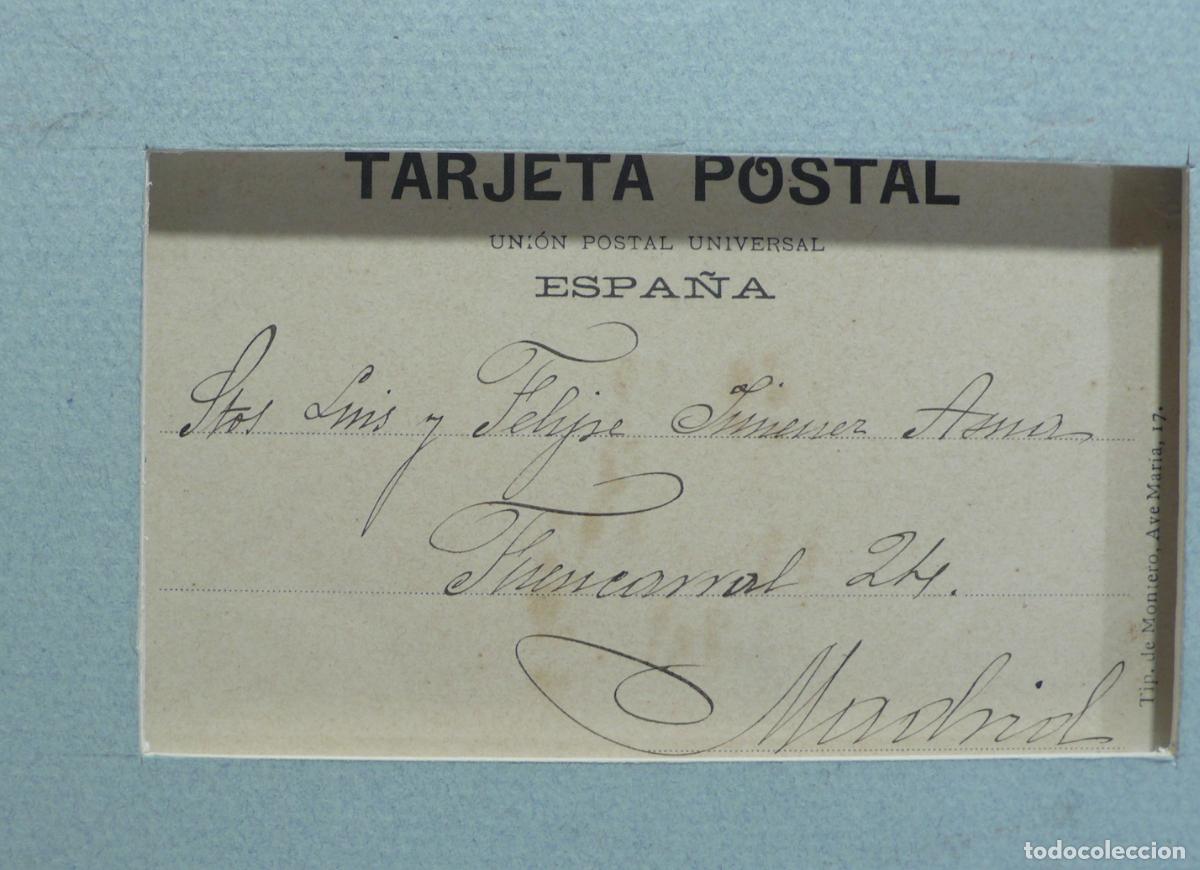 TARJETA POSTAL
UNIÓN POSTAL UNIVERSAL
ESPAÑA
Stos Luis y Felipe Jimenez Asua
Fuencarral 24.
Madrid
Tip. de Montero, Ave María, 17.
todocoleccion